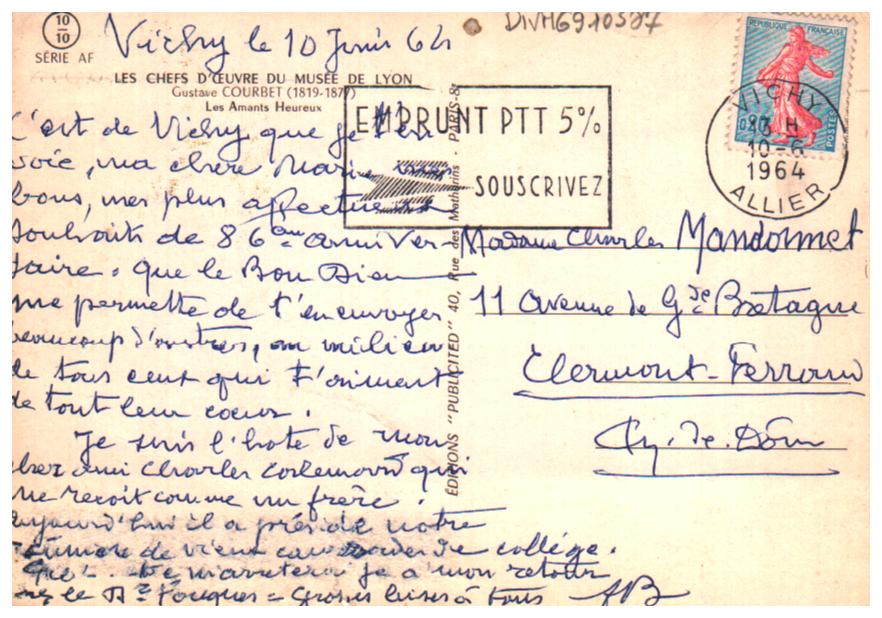 10
10
SÉRIE AF
DIVM6910587
Vichy le 10 Juin 64
LES CHEFS D'ŒUVRE DU MUSÉE DE LYON
Gustave COURBET (1819-1877)
Les Amants Heureux
C'est de Vichy que je t'en
voie, ma chère Marie mes
bons, mes plus affectueux
souhaits de 86ème anniver-
saire. Que le Bon Dieu
me permette de t'en envoyer
beaucoup d'autres, au milieu
de tous ceux qui t'aiment
de tout leur coeur.
Je suis l'hote de mon
cher ami Charles qui
me reçoit comme un frère.
Aujourd'hui il a présidé notre
réunion de vieux camarades de collège.
je m'arreterai à mon retour
le Dr Fouques = Grosses bises à tous
AB
ÉDITIONS "PUBLICITED" 40, Rue des Mathurins - PARIS-8e
EMPRUNT PTT 5%
SOUSCRIVEZ
REPUBLIQUE FRANÇAISE
POSTES
VICHY
H
10-6
1964
ALLIER
Madame Charles Mandonnet
11 avenue de Gde Bretagne
Clermont-Ferrand
Puy-de-Dôme